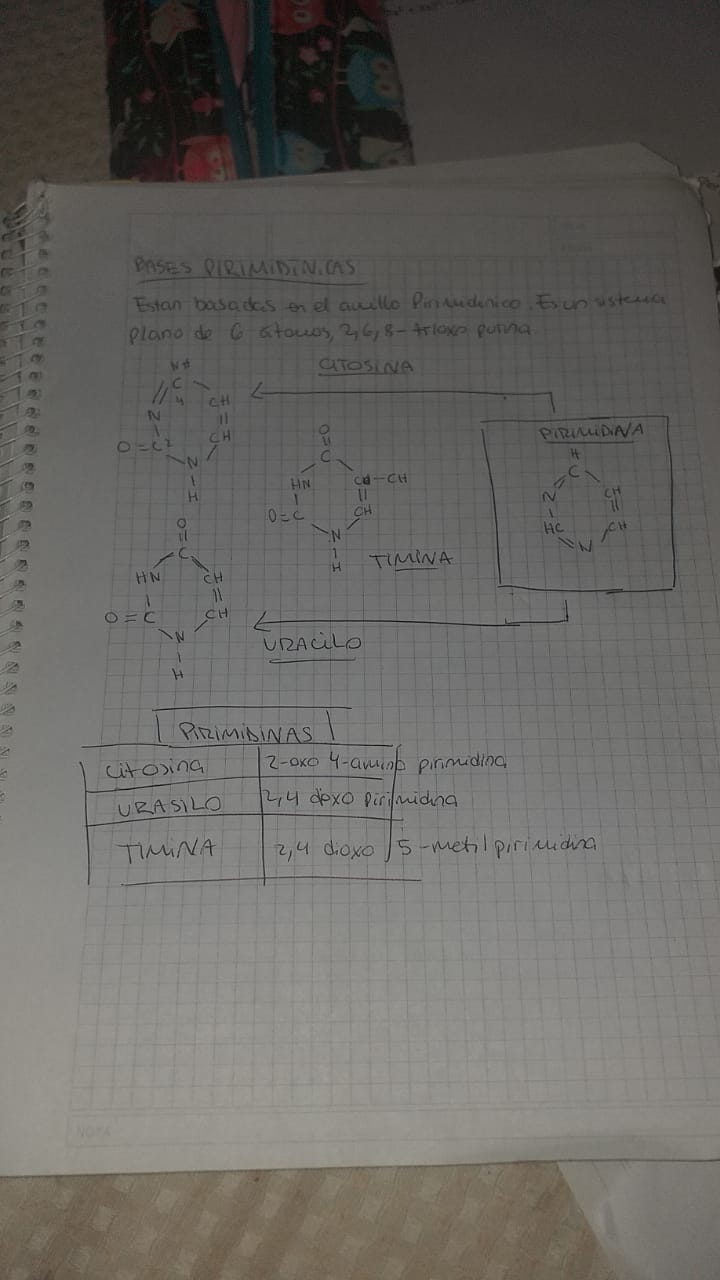 BASES PIRIMIDINICAS
Estan basadas en el anillo Pirimidenico. Es un sistema
plano de 6 átomos, 2,6,8-trioxo purina.
CITOSINA
C
4
CH
CH
N
O=C2
N
H
PIRIMIDINA
H
C
N
CH
HC
CH
N
O
C
HN
CH-CH
O=C
CH
N
H
TIMINA
O
C
HN
CH
O=C
CH
N
H
URACILO
PIRIMIDINAS
Citosina 2-oxo 4-amino pirimidina
URASILO 2,4 dioxo pirimidina
TIMINA 2,4 dioxo 5-metil pirimidina
NOTA